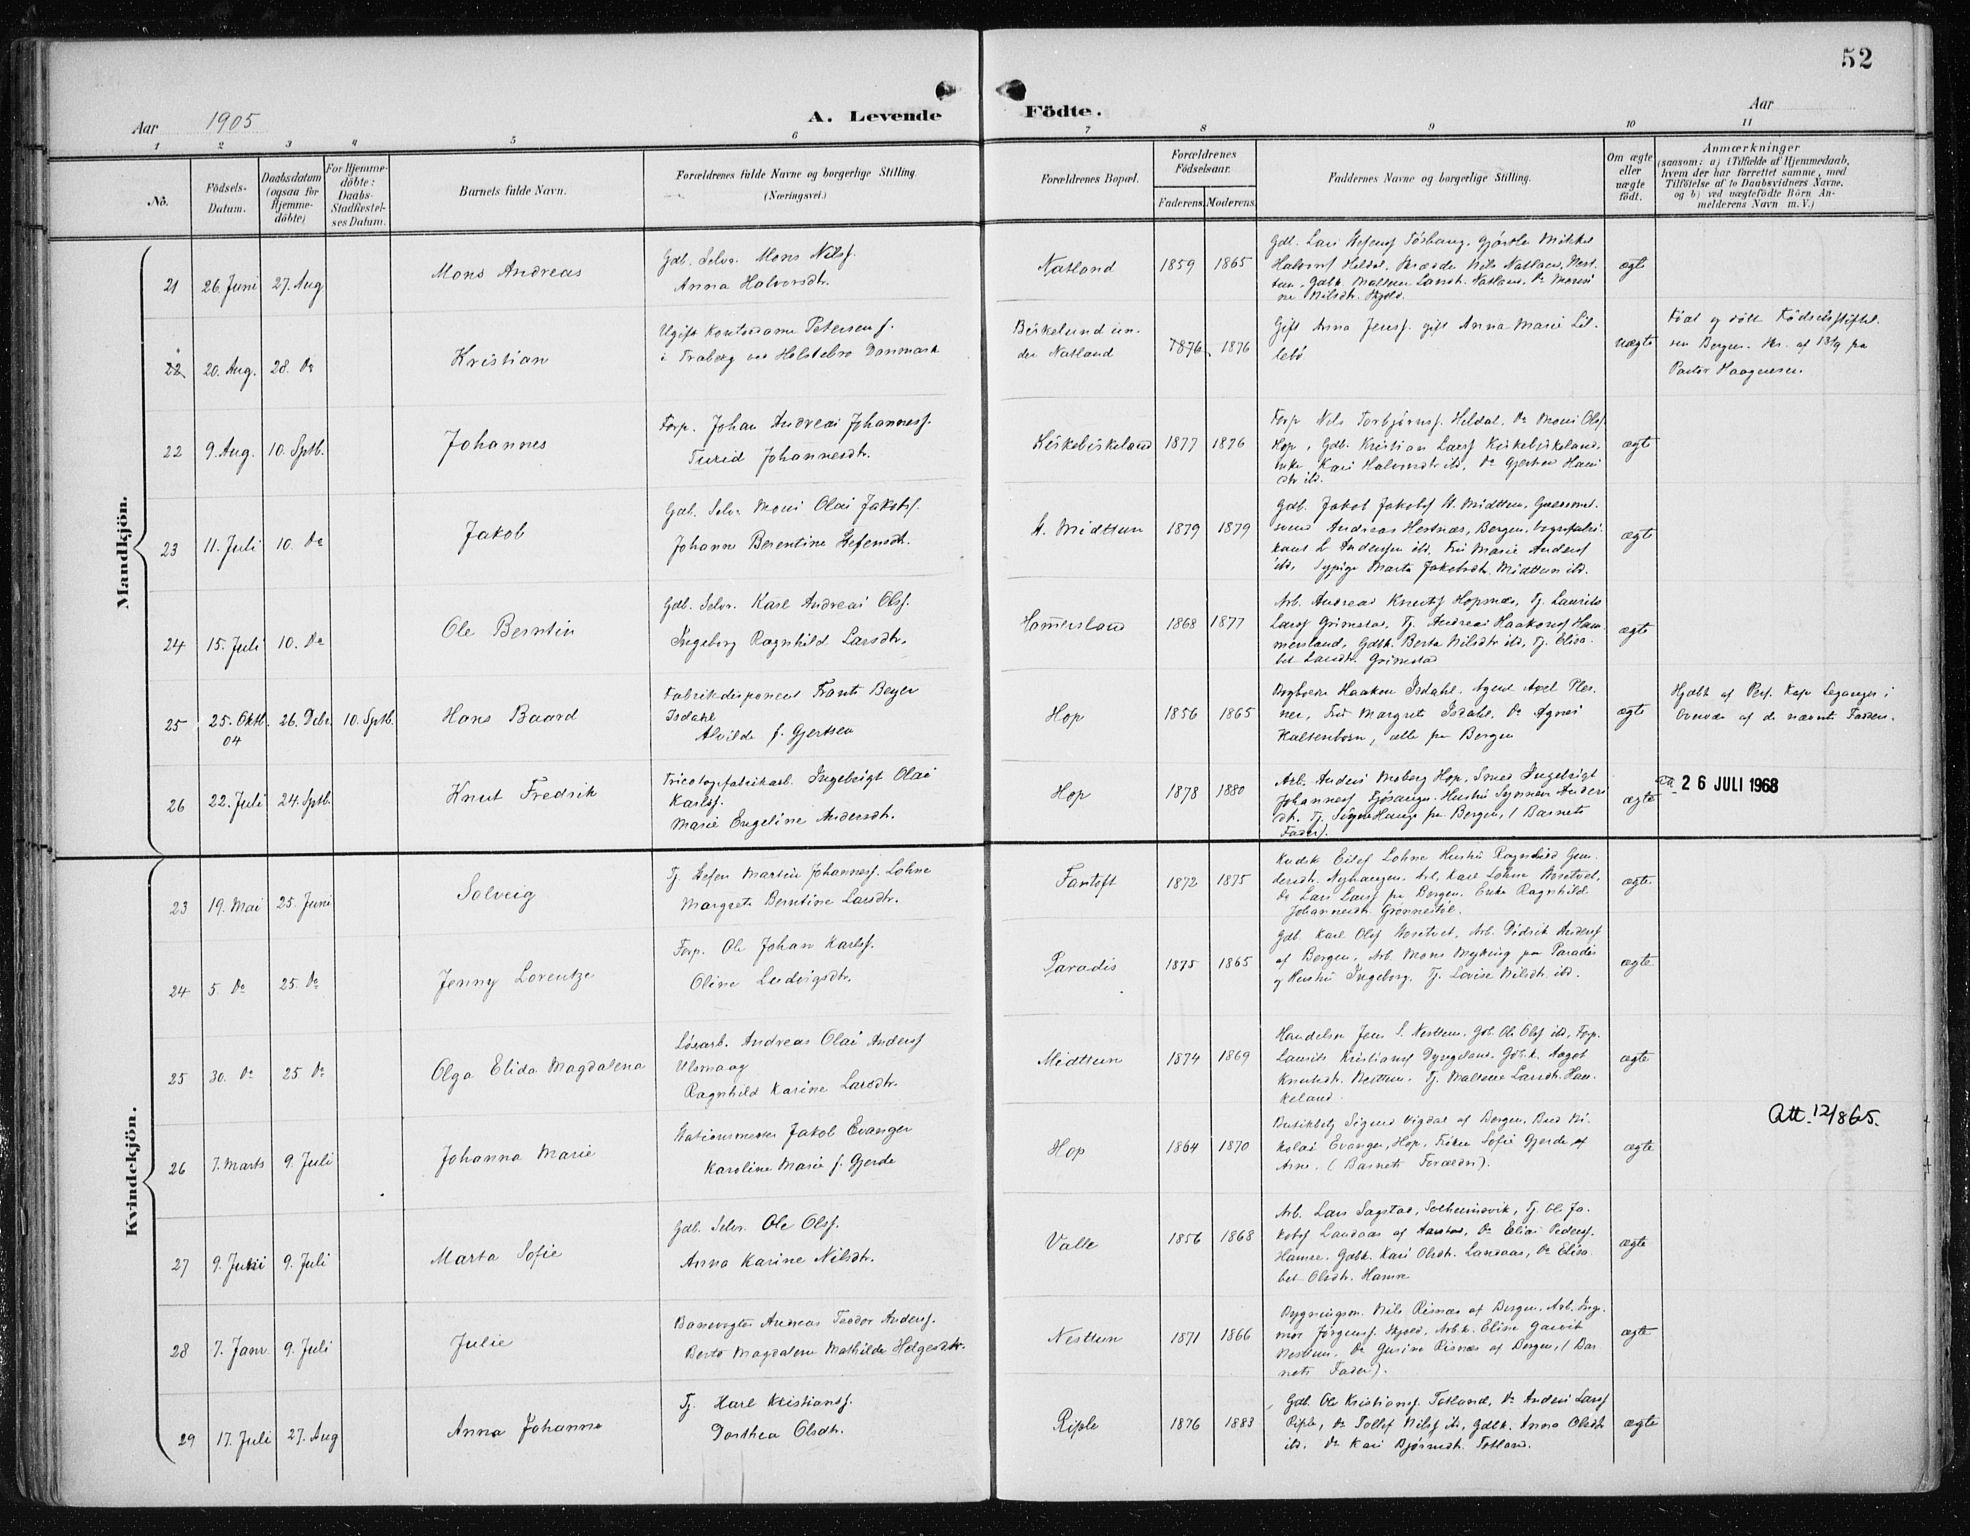 52
Aar 1905
A. Levende Födte.
Aar
1 2 3 4 5 6 7 8 9 10 11
No.
Födsels-
Datum.
Daabsdatum
(ogsaa for
Hjemme-
döbte)
For Hjemme-
döbte:
Daabs-
Stadfæstel-
ses Datum.
Barnets fulde Navn.
Forældrenes fulde Navne og borgerlige Stilling
(Næringsvei.)
Forældrenes Bopæl.
Forældrenes
Födselsaar.
Faderens. Moderens.
Faddernes Navne og borgerlige Stilling.
Om ægte
eller
uægte
födt.
Anmærkninger
(saasom: a) i Tilfælde af Hjemmedaab,
hvem der har forrettet samme, med
Tilföielse af to Daabsvidners Navne.
og b) ved uægtefödte Börn An-
melderens Navn m. V.)
Mandkjön.
21 26. Juni 27. Aug
Mons Andreas
Gdb. Selv. Mons Nilsf.
Anna Halvorsdtr.
Natland 1859 1865
ægte
22 20. Aug. 28. Do
Kristian
Ugift Kontordame Petersen f.
i Traberg ved Holstebro Danmark
Birkelund un-
der Natland 1876 1876
Gift Anna Jensf. gift Anna Marie Lil-
lebö
uægte
Født og døbt Fødselsstiftel-
sen Bergen.
Pastor Haagensen.
22 9. Aug. 10. Sptb.
Johannes
Forp. Johan Andreas Johannesf.
Turid Johannesdtr.
Kirkebirkeland 1877 1876
Forp Nils Torbjørnsf Heldal, Do Mons Olsf
Hop, Gdb. Kristian Larsf Kirkebirkeland,
ægte
23 11. Juli 10. Do
Jakob
Gdb. Selv. Mons Olai Jakobsf.
Johanne Berentine Stefensdt.
St. Midttun 1879 1879
Gdb. Jakob Jakobsf St. Midttun,
svend Andreas Hestnæs, Bergen,
Sypige Marta Jakobsdtr. Midttun ibd.
ægte
24 15. Juli 10. Do
Ole Berntin
Gdb. Selv. Karl Andreas Olsf.
Ingeborg Ragnhild Larsdtr.
Hamersland 1868 1877
Arb. Andreas Knutsf Hopsnæs, Tj. Laurits
Larsf Grimstad, Tj. Andreas Haakonsf Ham-
mersland, Gdbk. Berta Nilsdtr ibd, Tj. Elisa-
bet Larsdtr. Grimstad
ægte
25 25. Oktb. 04 26. Debr. 10. Sptb.
Hans Baard
Fabrikdisponent Frants Beyer
Isdahl
Alvilde f. Gjertsen
Hop 1856 1865
Haakon Isdahl. Agent Axel Ples-
ner, Frü Margrete Isdahl, Do Agnes
Kaltenborn, alle fra Bergen
ægte
Hjdbt af Pers. Kap. Leganger i
Overvær af de nævnte Faddere.
26 22. Juli 24. Sptb.
Knut Fredrik
Tricotagefabrikarb. Ingebrigt Olai
Karlsf.
Marie Engeline Andersdtr.
Hop 1878 1880
Arb. Anders Moberg Hop, Smed Ingebrigt
Johannesf Fjøsanger. Hustru Synneve Anders-
dtr. Tj. Signe Hauge fra Bergen, (Barnets
Fader).
ægte
Att. 26 JULI 1968
Kvindekjön.
23 19. Mai 25. Juni
Solveig
Tj. Stefen Martin Johannesf. Lohne
Margrete Berntine Larsdtr.
Fantoft 1872 1875
Kudsk Eilef Lohne Hustru Ragnhild Gun-
dersdt. Nyhaugen. Arb. Karl Lohne Hosetvet,
Do Lars Larsf fra Bergen. Enke Ragnhild
Johannesdt. Grønnestøl.
ægte.
24 5. Do 25. Do
Jenny Lorentze
Forp. Ole Johan Karlsf.
Oline Ludvigsdtr.
Paradis 1875 1865
Gdb. Karl Olsf Hosetvet, Arb. Didrik Andersf
af Bergen, Arb. Mons Myking fra Paradis
og Hustru Ingeborg. Tj. Lovise Nilsdt. ibd.
ægte
25 30. Do 25 Do
Olga Elida Magdalena
Løsarb. Andreas Olai Andersf
Ulsmaag
Ragnhild Karine Larsdtr.
Midttun 1874 1869
Handelsm Jens S. Nesttun, Gdb. Ole Olsf ibd, Forp.
Laurits Kristiansf Dyngeland. Gdbk. Aagot
Knutsdt. Nesttun. Tj. Maltene Larsdt. Hau-
keland.
ægte
26 7. Marts 9. Juli
Johanna Marie
Stationsmester Jakob Evanger
Karoline Marie f. Gjerde
Hop 1864 1870
Sigurd Vigdal af Bergen, Bud Ni-
kolai Evanger, Hop, Frøken Sofie Gjerde af
Arne. (Barnets Forældre).
ægte
Att. 12/8 65.
27 9. Juni 9. Juli
Marta Sofie
Gdb. Selv. Ole Olsf.
Anna Karine Nilsdtr.
Valle 1856 1868
Arb. Lars Sagstad, Solheimsvik, Tj. Ole Ja-
kobsf Landaas af Aarstad, Do Elias Pedersf.
Hamre. Gdbk. Kari Olsdt. Landaas, Do Elisa-
bet Olsdtr. Hamre
ægte
28 7. Janr. 9. Juli
Julie
Banevogter Andreas Teodor Andersf.
Berto Magdalene Mathilde Helgesdtr.
Nesttun 1871 1866
Bygningssn. Nils Risnæs af Bergen, Arb. Ing-
mar Jørgensf. Skjold, Arb.k. Elise Garvik
Nesttun. Do Gurine Risnæs af Bergen, (Bar-
nets Fader).
ægte
29 17. Juli 27. Aug
Anna Johanna
Tj. Harl Kristiansf.
Dorthea Olsdtr.
Riple 1876 1883
Gdb. Ole Kristiansf Totland, Do Anders Larsf
Riple, Do Tollef Nilsf ib, Gdbk. Anna Olsdt
ibd. Do Kari Bjørnsdt. Totland.
ægte